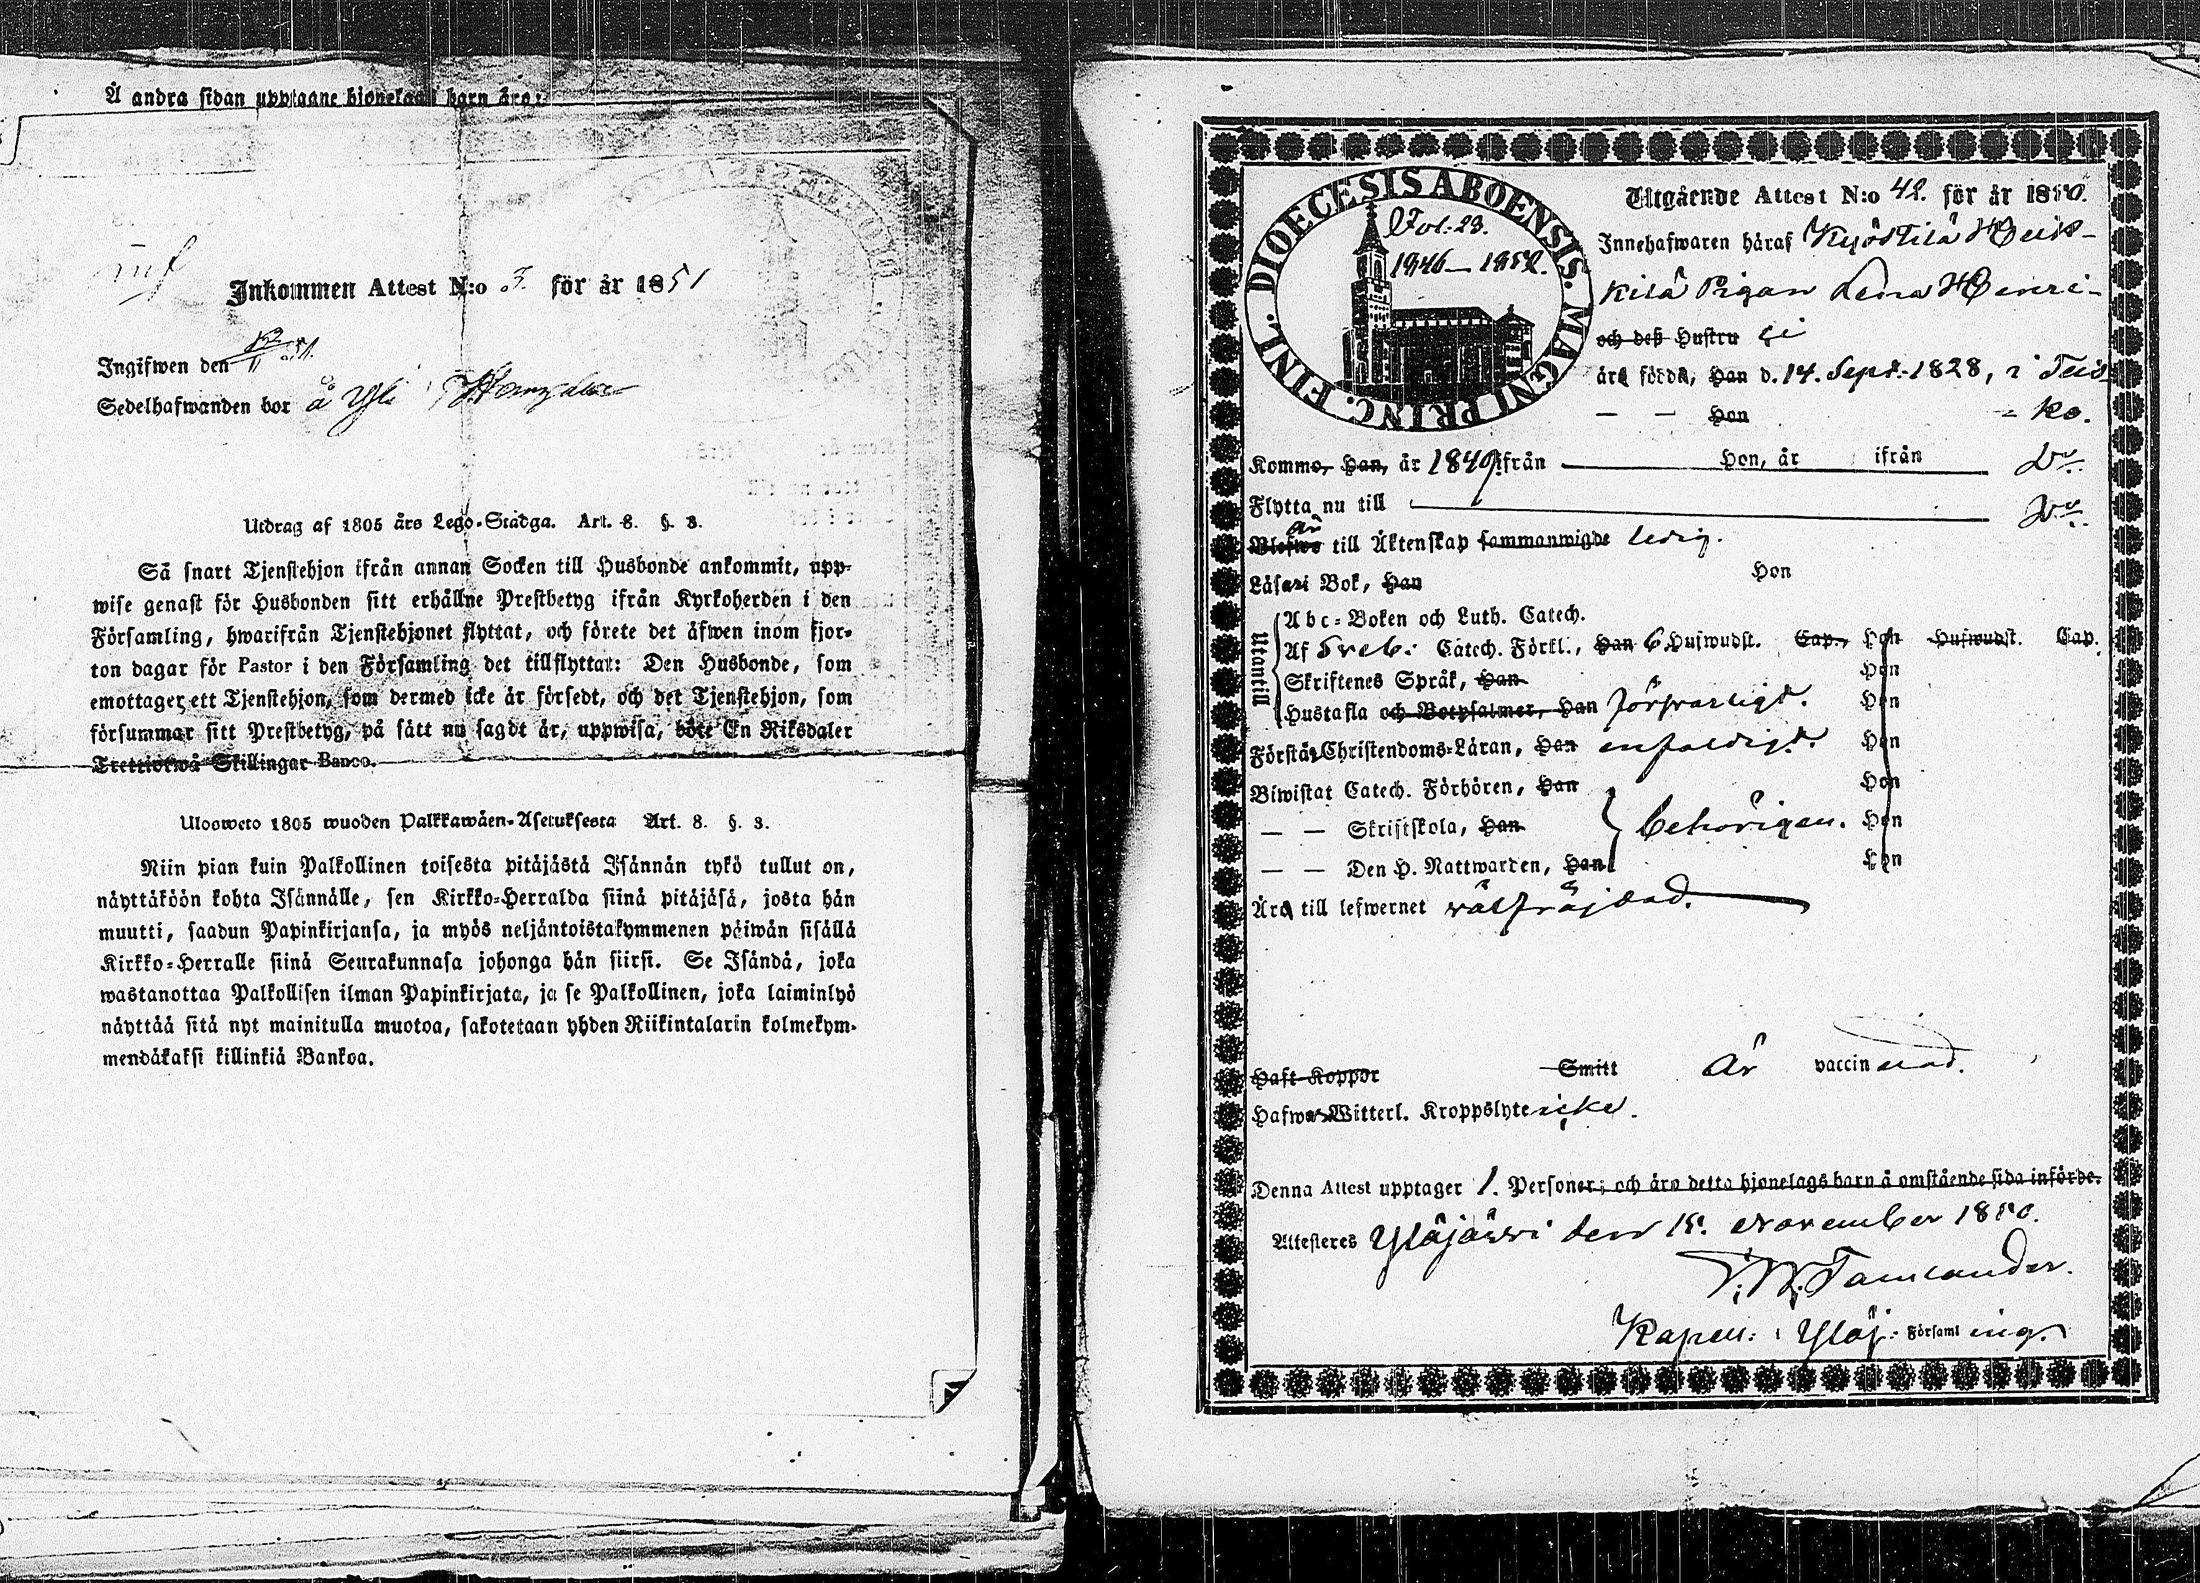 Å andra sidan upptagne hjonelags barn äro:
Inkommen Attest N:o 3. för år 1851
Ingifwen den
Sedelhafwanden bor å Yli
Utdrag af 1805 års Lego-Stadga. Art. 8. §. 3.
Så snart Tjenstehjon ifrån annan Socken till Husbonde ankommit, upp-
wise genast för Husbonden sitt erhållne Prestbetyg ifrån Kyrkoherden i den
Församling, hwarifrån Tjenstehjonet flyttat, och förete det äfwen inom fjor-
ton dagar för Pastor i den Församling det tillflyttat: Den Husbonde, som
emottager ett Tjenstehjon, som dermed icke är försedt, och det Tjenstehjon, som
försummar sitt Prestbetyg, på sätt nu sagdt är, uppwisa, böte En Riksdaler
Trettiotwå Skillingar Banco.
Ulosweto 1805 wuoden Palkkawäen-Asetuksesta Art. 8. §. 3.
Niin pian kuin Palkollinen toisesta pitäjästä Isännän tykö tullut on,
näyttäköön kohta Isännälle, sen Kirkko-Herralda siinä pitäjäsä, josta hän
muutti, saadun Papinkirjansa, ja myös neljäntoistakymmenen päiwän sisällä
Kirkko-Herralle siinä Seurakunnasa johonga hän siirsi. Se Isändä, joka
wastanottaa Palkollisen ilman Papinkirjata, ja se Palkollinen, joka laiminlyö
näyttää sitä nyt mainitulla muotoa, sakotetaan yhden Riikintalarin kolmekym-
mendäkaksi killinkiä Bankoa.
DIOECESIS ABOENSIS. MAGNI PRINC. FINL.
Fol: 23.
1846–1852.
Utgående Attest N:o 42. för år 1850.
Innehafwaren häraf Kyöstilä Heis-
kilä Pigan Lena Henri-
och deß Hustru ei
äro födde, Han d. 14. Sept. 1828, i Teis-
— — Hon ko.
Kommo, Han, år 1849 ifrån Hon, år ifrån
Flytta nu till
är
Blefwo till Äktenskap sammanwigde ledig.
Läsa i Bok, Han Hon
Utantill
Abc-Boken och Luth. Catech.
Af Sveb: Catech. Förkl., Han 6 Hufwudst. Cap., Hon Hufwudst. Cap.
Skriftenes Språk, Han Hon
Hustafla och Botpsalmer, Han försvarligt. Hon
Förstår Christendoms-Läran, Han enfaldigt. Hon
Biwistat Catech. Förhören, Han Hon
— — Skriftskola, Han behörigen. Hon
— — Den H. Nattwarden, Han Hon
Äro till lefwernet välfräjdad.
Haft Koppor Smitt Är vaccinerad.
Hafwa Witterl. Kroppslyte icke.
Denna Attest upptager 1. Personer; och äro detta hjonelags barn å omstående sida införde.
Attesteres Ylöjärvi den 15. November 1850.
Tamlander.
Kapell: i Ylöj: Församling.